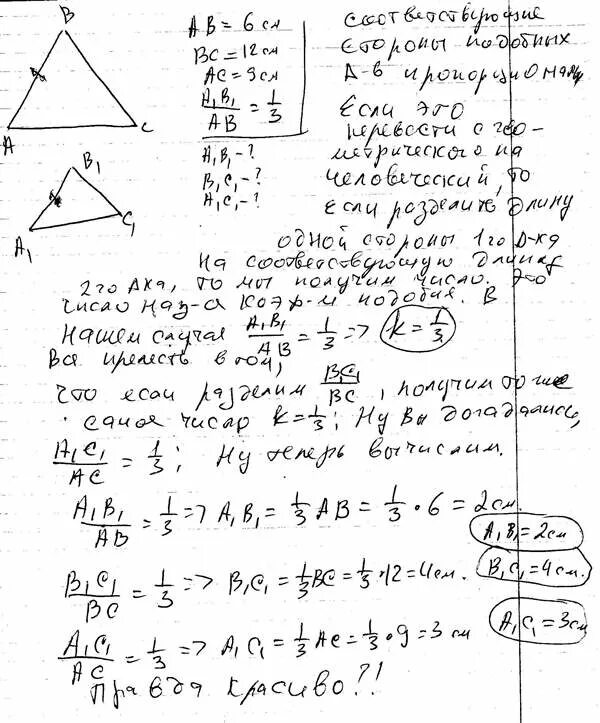 B
A
C
B₁
A₁
C₁
AB = 6 см
BC = 12 см
AC = 9 см
A₁B₁/AB = 1/3
A₁B₁ - ?
B₁C₁ - ?
A₁C₁ - ?
соответствующие
стороны подобных
Δ-в пропорциональн
Если это
перевести с гео-
метрического на
человеческий, то
если разделить длину
одной стороны 1го Δ-ка
на соответствующую длину
2го Δка, то мы получим число. Это
число наз-ся коэф-м подобия. В
нашем случае A₁B₁/AB = 1/3 => k = 1/3.
Вся прелесть в том,
что если разделим B₁C₁/BC, получим то же
самое число k = 1/3; Ну вы догадались,
A₁C₁/AC = 1/3; Ну теперь вычислим.
A₁B₁/AB = 1/3 => A₁B₁ = 1/3 AB = 1/3 · 6 = 2 см.
A₁B₁ = 2 см
B₁C₁/BC = 1/3 => B₁C₁ = 1/3 BC = 1/3 · 12 = 4 см.
B₁C₁ = 4 см.
A₁C₁/AC = 1/3 => A₁C₁ = 1/3 AC = 1/3 · 9 = 3 см
A₁C₁ = 3 см
Правда красиво?!